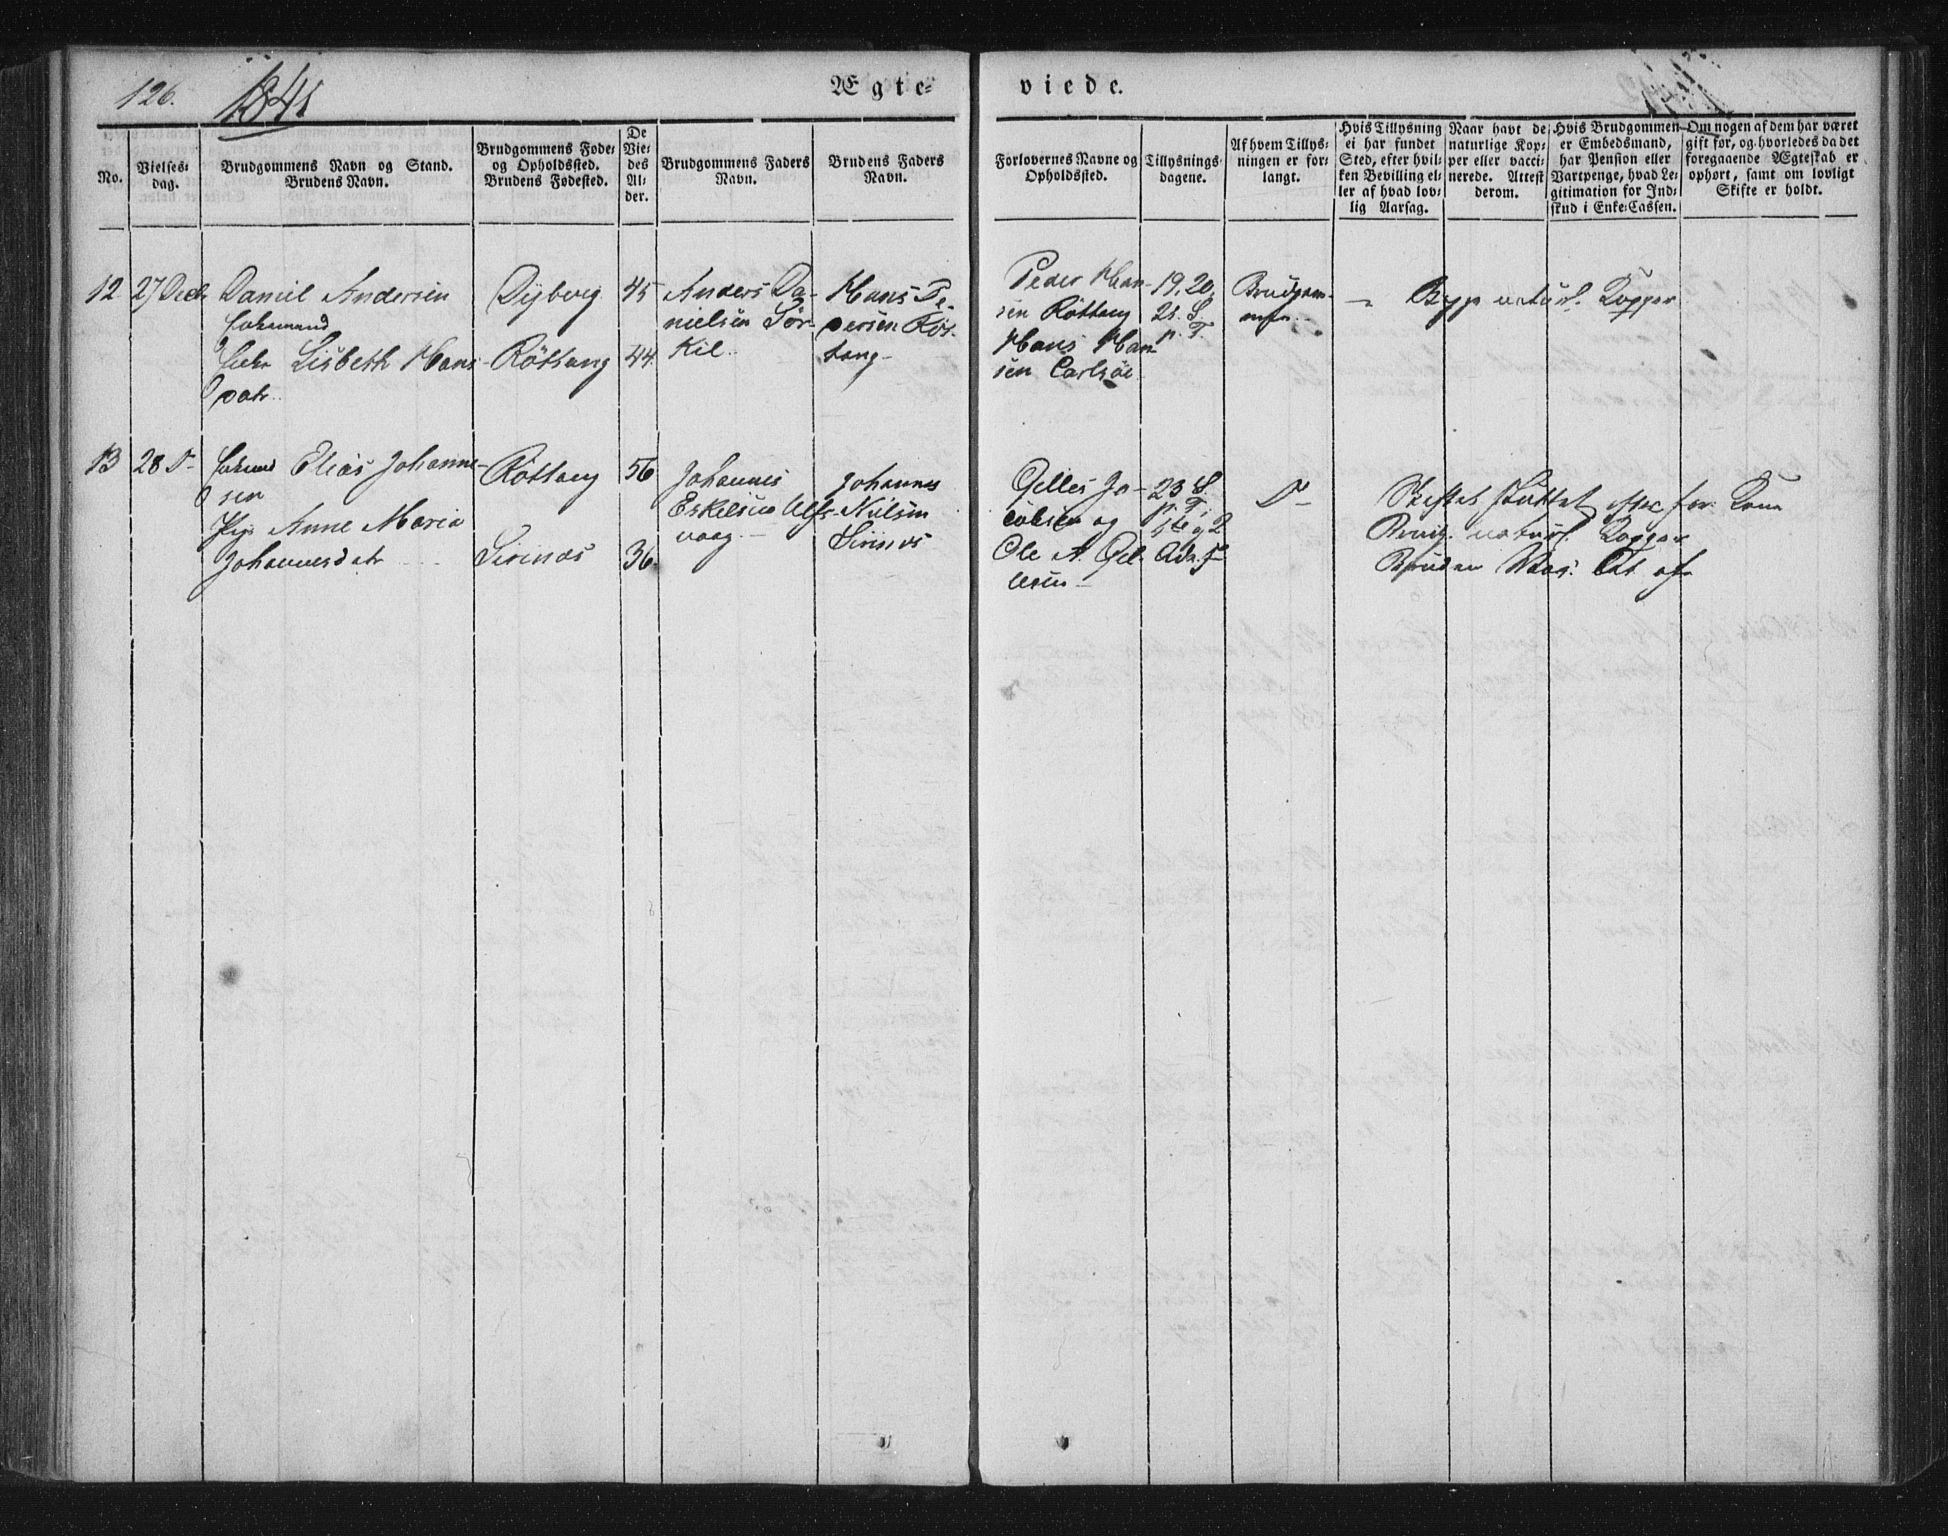 126.
1841
Ægte-
viede.
No.
Vielses-
dag.
Brudgommens Navn og Stand.
Brudens Navn.
Brudgommens Føde-
og Opholdssted.
Brudens Fødested.
De
Vie-
des
Al-
der.
Brudgommens Faders
Navn.
Brudens Faders
Navn.
Forlovernes Navne og
Opholdssted.
Tillysnings-
dagene.
Af hvem Tillys-
ningen er for-
langt.
Hvis Tillysning
ei har fundet
Sted, efter hvil-
ken Bevilling el-
ler af hvad lov-
lig Aarsag.
Naar havt de
naturlige Kop-
per eller vacci-
nerede. Attest
derom.
Hvis Brudgommen
er Embedsmand,
har Pension eller
Vartpenge, hvad Le-
gitimation for Ind-
skud i Enke-Cassen.
Om nogen af dem har været
gift før, og hvorledes da det
foregaaende Ægteskab er
ophørt, samt om lovligt
Skifte er holdt.
12
27 Decb
Daniel Andersen
Enkemand
Enke Lisbeth Hans-
datr.
Dyberg
Røttang
45
44
Anders Da-
nielsen Sør-
kil.
Hans Pe-
dersen Røt-
tang
Peder Han-
sen Røttang
Hans Han-
sen Carlsøe
19, 20,
21. S.
p. T.
Brudgom-
men
Begge naturl. Kopper
13
28 D
Elias Johanne-
sen
Pige Anne Maria
Johannesdatr
Røttang
Sirinæs
56
36
Johannes
Eskelsen Ulfs-
vaag
Johannes
Nielsen
Sirinæs
Gelles Ja-
cobsen og
Ole A. Gel-
lesen
23 S.
p. T.
1ste og 2
Adv. S
D
Skiftet sluttet efter for. Kone
Brudg. naturl. Kopper
Bruden Vac. Att.